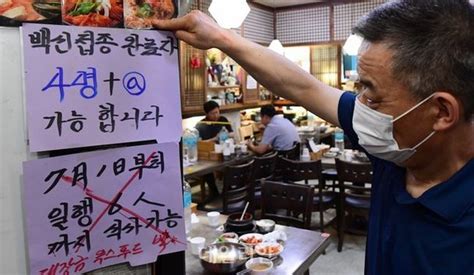 백신접종 완료자
4명 + @
가능 합니다
7月 1日 부터
일행 人
까지 식사가능